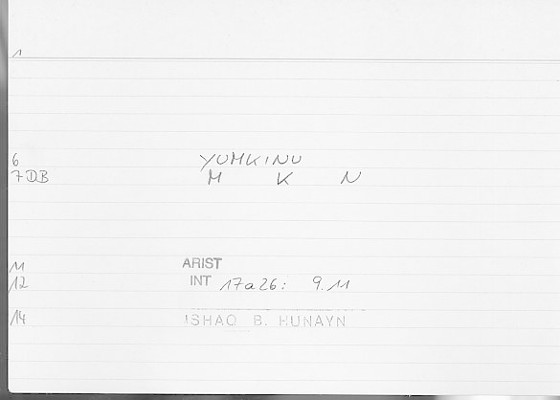 1
6 YUMKINU
7 DB M K N
11 ARIST
12 INT 17a26: 9.11
14 ISHAQ B. HUNAYN